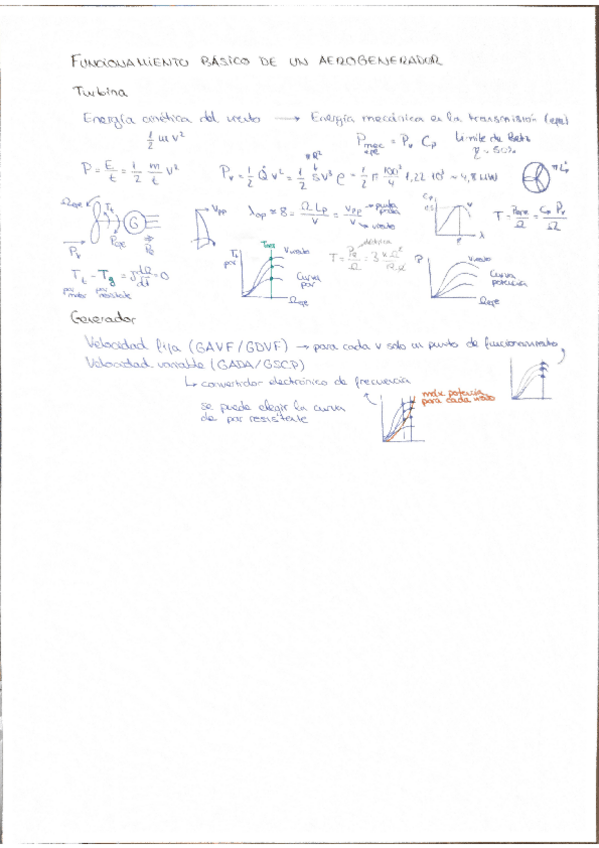 FUNCIONAMIENTO BÁSICO DE UN AEROGENERADOR
Turbina
Energía cinética del viento → Energía mecánica en la transmisión (eje)
1/2 m v² P mec eje = Pv Cp Límite de Betz
P = E/t = 1/2 m/t v² Pv = 1/2 Q̇ v² = 1/2 S v³ ρ = 1/2 π 100²/4 1,22 10³ ~ 4,8 MW
πR²
Ωeje Tt Peje G Pe Pv
Vpp λop ≈ 8 = Ω Lp / V = Vpp / V → punta pala → viento
Cp 0.5 λ T = Peje/Ω = Cp Pv/Ω
Tt par Vviento Curva par Ωeje
P Vviento Curva potencia Ωeje
Tt - Tg = J dΩ/dt = 0
par motor par resistente
Generador
Velocidad fija (GAVF/GDVF) → para cada v solo un punto de funcionamiento
Velocidad variable (GADA/GSCP)
↳ convertidor electrónico de frecuencia
se puede elegir la curva de par resistente
máx potencia para cada viento